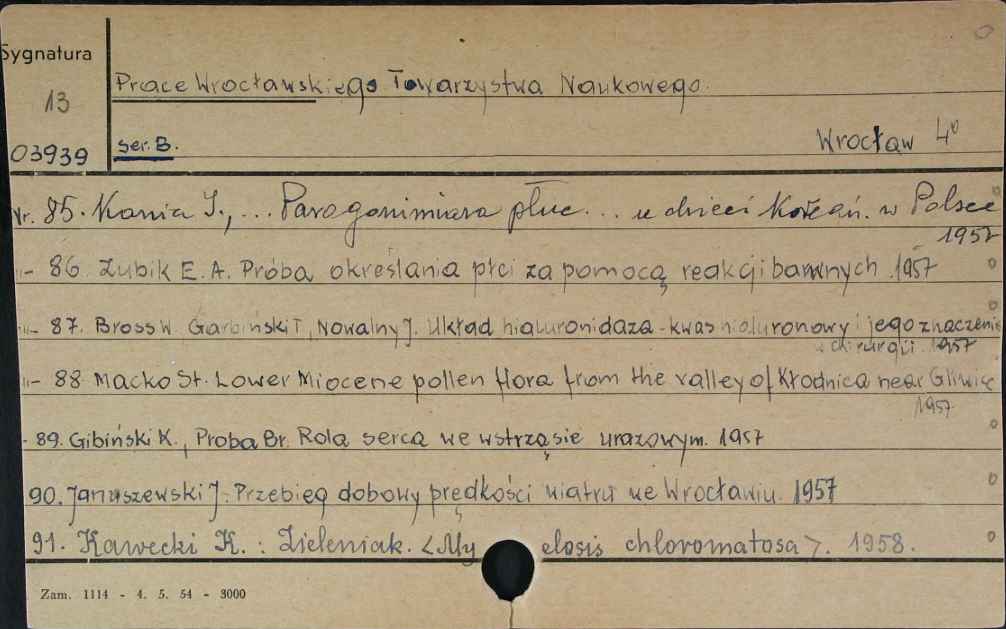 Sygnatura
13
03939
Prace Wrocławskiego Towarzystwa Naukowego.
ser. B.
Wrocław 4°
Nr. 85. Kania J., ... Paragonimiaza płuc ... u dzieci Koreań. w Polsce
1957
"- 86. Zubik E. A. Próba określania płci za pomocą reakcji barwnych 1957
"- 87. Bross W Garbiński T, Nowalny J. Układ hialuronidaza - kwas hialuronowy i jego znaczenie
w chirurgii. 1957
"- 88 Macko St. Lower Miocene pollen flora from the valley of Kłodnica near Gliwice
1957
- 89. Gibiński K., Proba Br. Rola serca we wstrząsie urazowym. 1957
90. Januszewski J. Przebieg dobowy prędkości wiatru we Wrocławiu. 1957
91. Kawecki K.: Zieleniak. <My elosis chloromatosa>. 1958.
Zam. 1114 - 4. 5. 54 - 3000